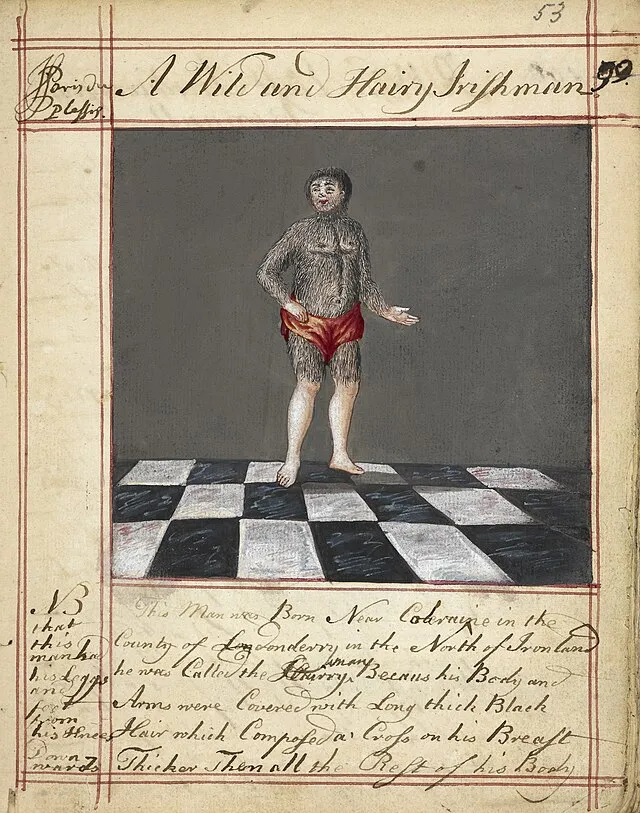 53
Paris du
Plessis.
A Wild and Hairy Irishman.
90.
This Man was Born Near Colraine in the
County of Londonderry in the North of Ironland
he was Called the Hairy man Becaus his Body and
Arms were Covered with Long thick Black
Hair which Composed a Cross on his Breast
Thicker Then all the Rest of his Body
NB
that
this
man had
his Leggs
and
feet
from
his Knees
Down
wards